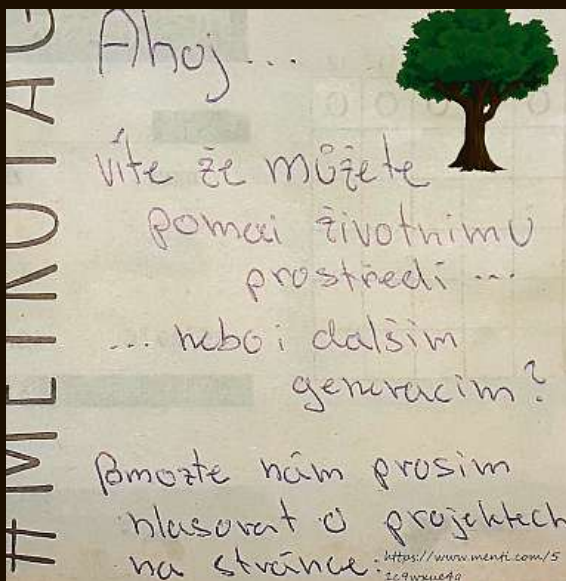 #METROTAG
Ahoj...
víte že můžete
pomoci životnimu
prostředi ...
... nebo i dalším
generacim?
Pomozte nám prosim
hlasovat o projektech
na stránce:
https://www.menti.com/5
1c9wxue4q